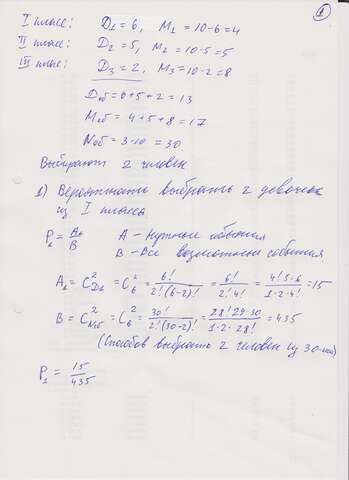 1
I класс: D₁ = 6, M₁ = 10-6 = 4
II класс: D₂ = 5, M₂ = 10-5 = 5
III класс: D₃ = 2, M₃ = 10-2 = 8
Dоб = 6+5+2 = 13
Mоб = 4+5+8 = 17
Nоб = 3·10 = 30
Выбирают 2 человек
1) Вероятность выбрать 2 девочек
из I класса
P₁ = A₁/B A - нужные события
B - Все возможные события
A₁ = C²D₁ = C₆² = 6!/2!(6-2)! = 6!/2!4! = 4!·5·6/1·2·4! = 15
B = C²Nоб = C₆² = 30!/2!(30-2)! = 28!·29·30/1·2·28! = 435
(Способов выбрать 2 человек из 30-ти)
P₁ = 15/435